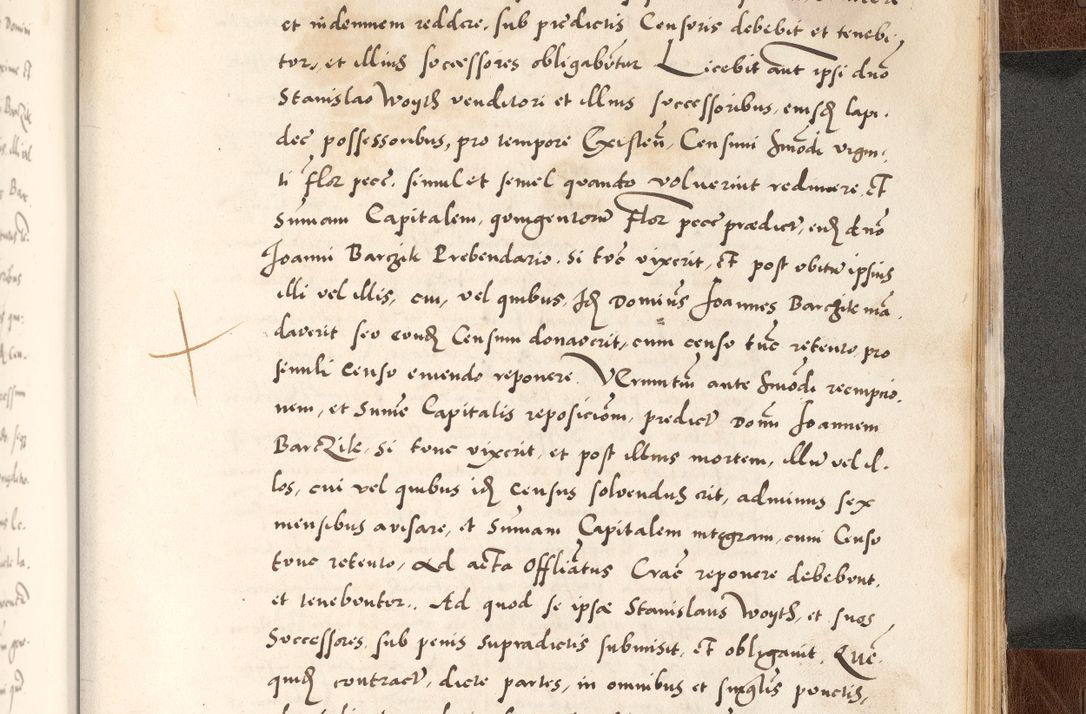 et indemnem reddere, sub predictis Censoris debebit et tenebi,
tur, et illius successores obligabuntur Licebit aut ipsi dno
Stanislao Woyth venditori et illius successoribus, eiusd lapi.
dee possessoribus, pro tempore Existen, Censum hmodi vigin,
ti flor pece. simul et semel quando voluerint redimere, et
Sumam Capitalem, quingentorum Flor pece predict, eid dno
Joanni Barczik Prebendario. Si tuc vixerit, et post obitu ipsius
illi vel illis, cui, vel quibus, Id Dominus Joannes Barczik man
daverit seu eund Censum donaverit, cum censo tuc retento pro
simili Censo emendo reponere. Veruntm ante hmodi reempcio,
nem, et Sume Capitalis reposiciom, predict Domi Joannem
Barczik, Si tunc vixerit, et post illius mortem, illu vel il.
los, cui vel quibus id Census solvendus erit, adminus sex
mensibus avisare, et Sumam Capitalem integram, cum Censo
tunc retento, Ad acta Offliatus Crac reponere debebunt,
et tenebuntur. Ad quod se ipse Stanislaus Woyth, et suos,
Successores, sub penis supradictis submisit, et obligavit, Que.
quid contract, dicte partes, in omnibus et singlis punctis,